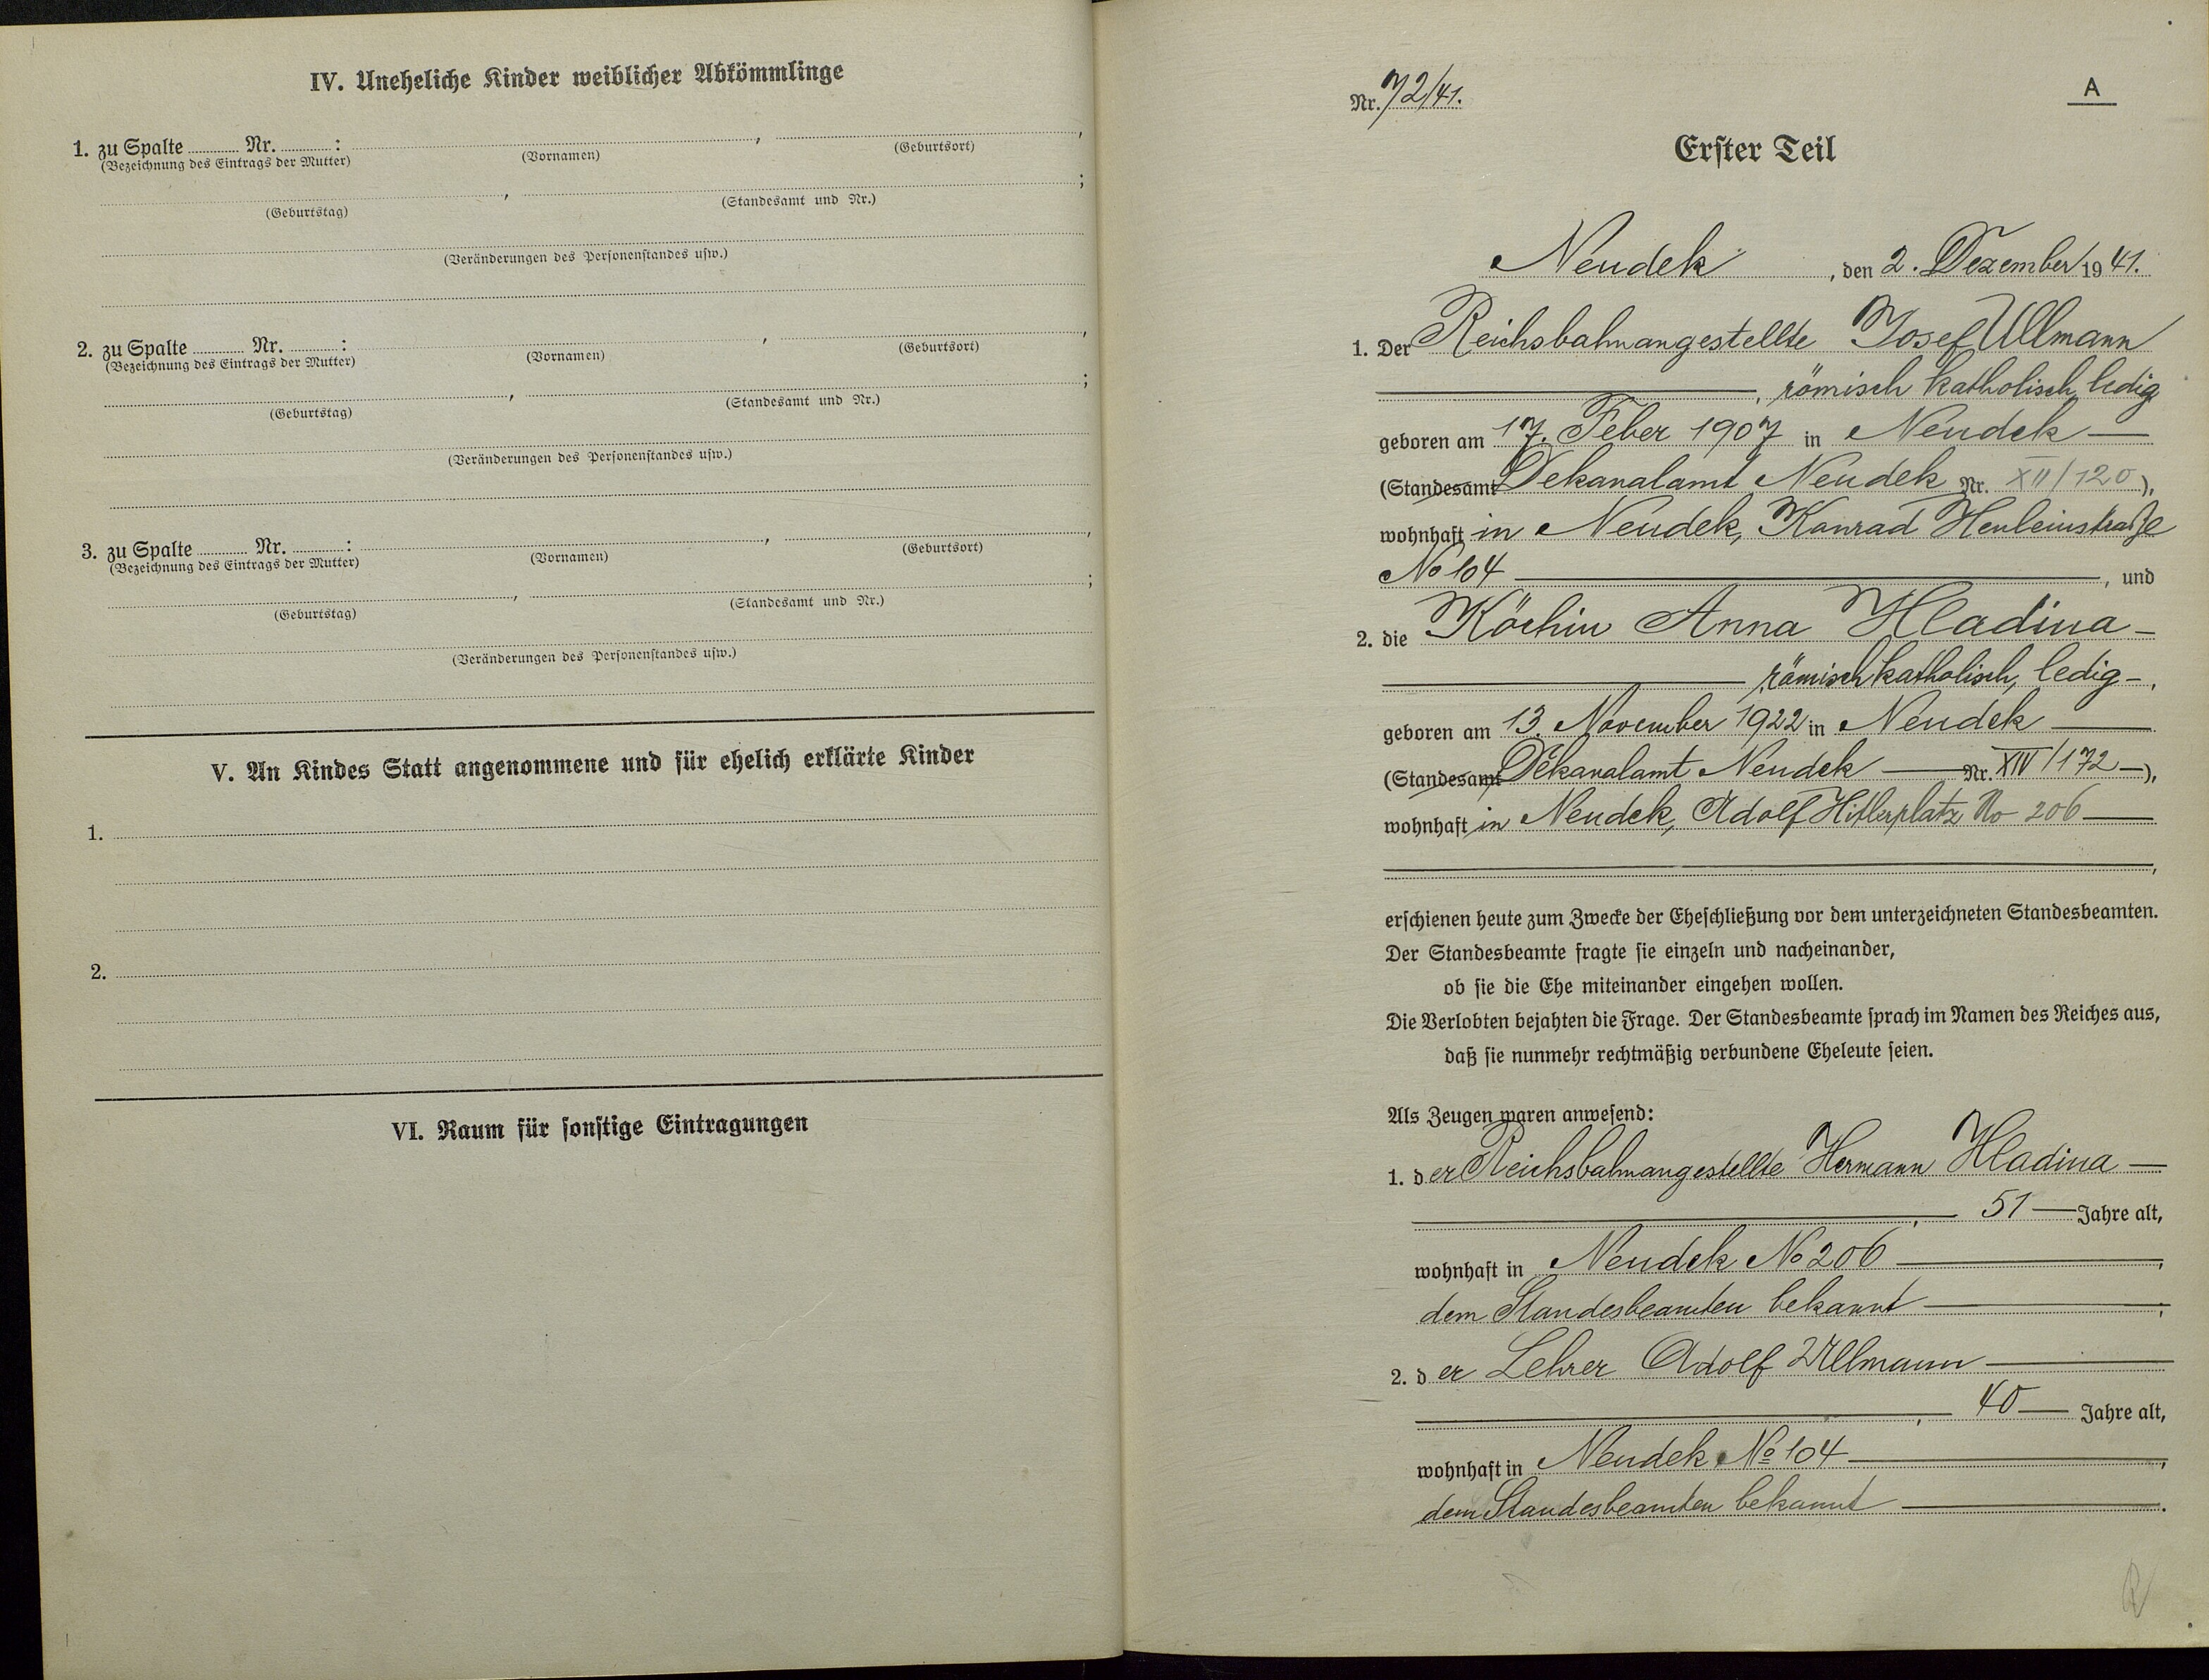 IV. Uneheliche Kinder weiblicher Abkömmlinge
1. zu Spalte ........ Nr. ........ :
,
,
(Bezeichnung des Eintrags der Mutter)
(Vornamen)
(Geburtsort)
,
;
(Geburtstag)
(Standesamt und Nr.)
(Veränderungen des Personenstandes usw.)
2. zu Spalte ........ Nr. ........ :
,
,
(Bezeichnung des Eintrags der Mutter)
(Vornamen)
(Geburtsort)
,
;
(Geburtstag)
(Standesamt und Nr.)
(Veränderungen des Personenstandes usw.)
3. zu Spalte ........ Nr. ........ :
,
,
(Bezeichnung des Eintrags der Mutter)
(Vornamen)
(Geburtsort)
,
;
(Geburtstag)
(Standesamt und Nr.)
(Veränderungen des Personenstandes usw.)
V. An Kindes Statt angenommene und für ehelich erklärte Kinder
1.
2.
VI. Raum für sonstige Eintragungen
Nr. 72/41.
A
Erster Teil
Neudek, den 2. Dezember 1941.
1. Der Reichsbahnangestellte Josef Ullmann
, römisch katholisch, ledig
geboren am 17. Feber 1907 in Neudek —
(Standesamt Dekanalamt Neudek Nr. XII/120),
wohnhaft in Neudek, Konrad Henleinstraße
No 104 —, und
2. die Köchin Anna Hladina —
, römisch katholisch, ledig —,
geboren am 13. November 1922 in Neudek —
(Standesamt Dekanalamt Neudek — Nr. XIV/172 —),
wohnhaft in Neudek, Adolf Hitlerplatz No 206 —
,
erschienen heute zum Zwecke der Eheschließung vor dem unterzeichneten Standesbeamten.
Der Standesbeamte fragte sie einzeln und nacheinander,
ob sie die Ehe miteinander eingehen wollen.
Die Verlobten bejahten die Frage. Der Standesbeamte sprach im Namen des Reiches aus,
daß sie nunmehr rechtmäßig verbundene Eheleute seien.
Als Zeugen waren anwesend:
1. der Reichsbahnangestellte Hermann Hladina —
, 51 — Jahre alt,
wohnhaft in Neudek No 206 —,
dem Standesbeamten bekannt —;
2. der Lehrer Adolf Ullmann —
, 40 — Jahre alt,
wohnhaft in Neudek No 104 —,
dem Standesbeamten bekannt —.